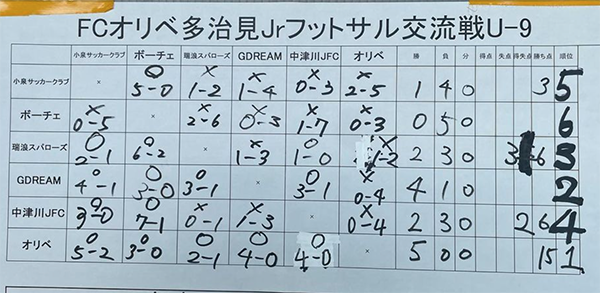 FCオリベ多治見Jrフットサル交流戦U-9
小泉サッカークラブ ポーチェ 瑞浪スパローズ GDREAM 中津川JFC オリベ 勝 負 分 得点 失点 得失点 勝ち点 順位
小泉サッカークラブ × ○ 5-0 × 1-2 × 1-4 × 0-3 × 2-5 1 4 0 3 5
ポーチェ × 0-5 × × 2-6 × 0-3 × 1-7 × 0-3 0 5 0 6
瑞浪スパローズ ○ 2-1 ○ 6-2 × × 1-3 ○ 1-0 × 1-2 2 3 0 3 6 3
GDREAM ○ 4-1 ○ 3-0 ○ 3-1 × ○ 3-1 × 0-4 4 1 0 2
中津川JFC ○ 3-0 ○ 7-1 × 0-1 × 1-3 × × 0-4 2 3 0 2 6 4
オリベ ○ 5-2 ○ 3-0 ○ 2-1 ○ 4-0 ○ 4-0 × 5 0 0 15 1